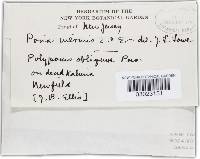 HERBARIUM OF THE
NEW YORK BOTANICAL GARDEN
New Jersey
Poria inermis E. & E. - det. J. L. Lowe
Polyporus obliquus Pers.
on dead Kalmia
Newfield
[J. B. Ellis]
NEW YORK BOTANICAL GARDEN